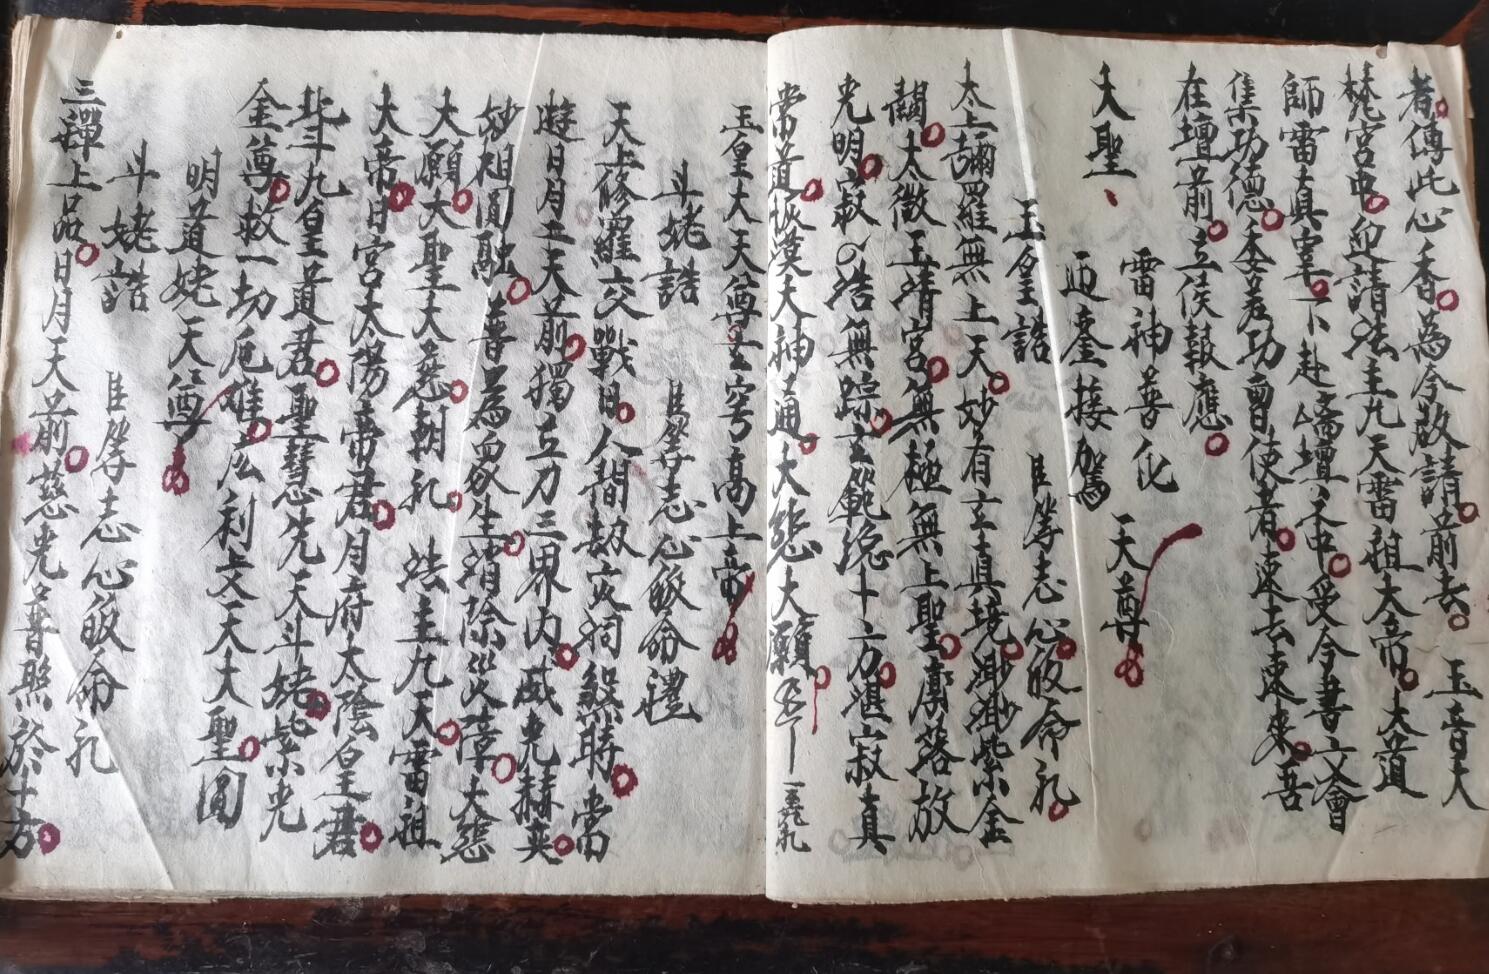 玉音大
者傳此心香為今啟請前去
梵宮中迎請法主九天雷祖大帝大道
師雷真宰下赴壇受今書文會
集功德功曹使者速去速來吾
在壇前立候報應
大聖
雷神普化天尊
迎鑾接駕
玉皇誥
臣等志心皈命礼
太上彌羅無上天妙有玄真境渺渺紫金
闕太微玉清宮無極無上聖廓落放
光明寂〃浩無踪玄範總十方湛寂真
常道恢漠大神通大慈大願
玉皇大天尊玄穹高上帝
斗姥誥
臣等志心皈命禮
天上修羅交戰日人間劫灾祠
遊日月二天前獨立刀三界內威光赫奕
妙相圓融普為众生消除災障大慈
大願大聖大慈朝礼法主九天雷祖
大帝日宮太陽帝君月府太陰皇君
北斗九皇道君聖慧先天斗姥紫光
金尊救一切厄難広利
天大聖圓
明道姥天尊
斗姥誥
臣等志心皈命礼
三禪上品日月天前慈光普照於十方